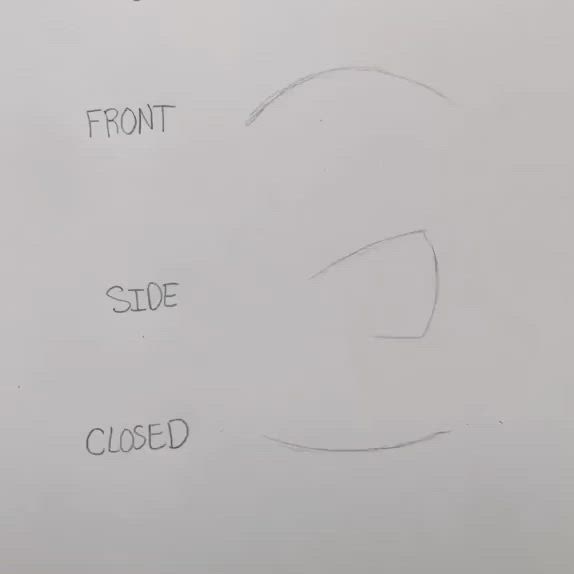 FRONT
SIDE
CLOSED